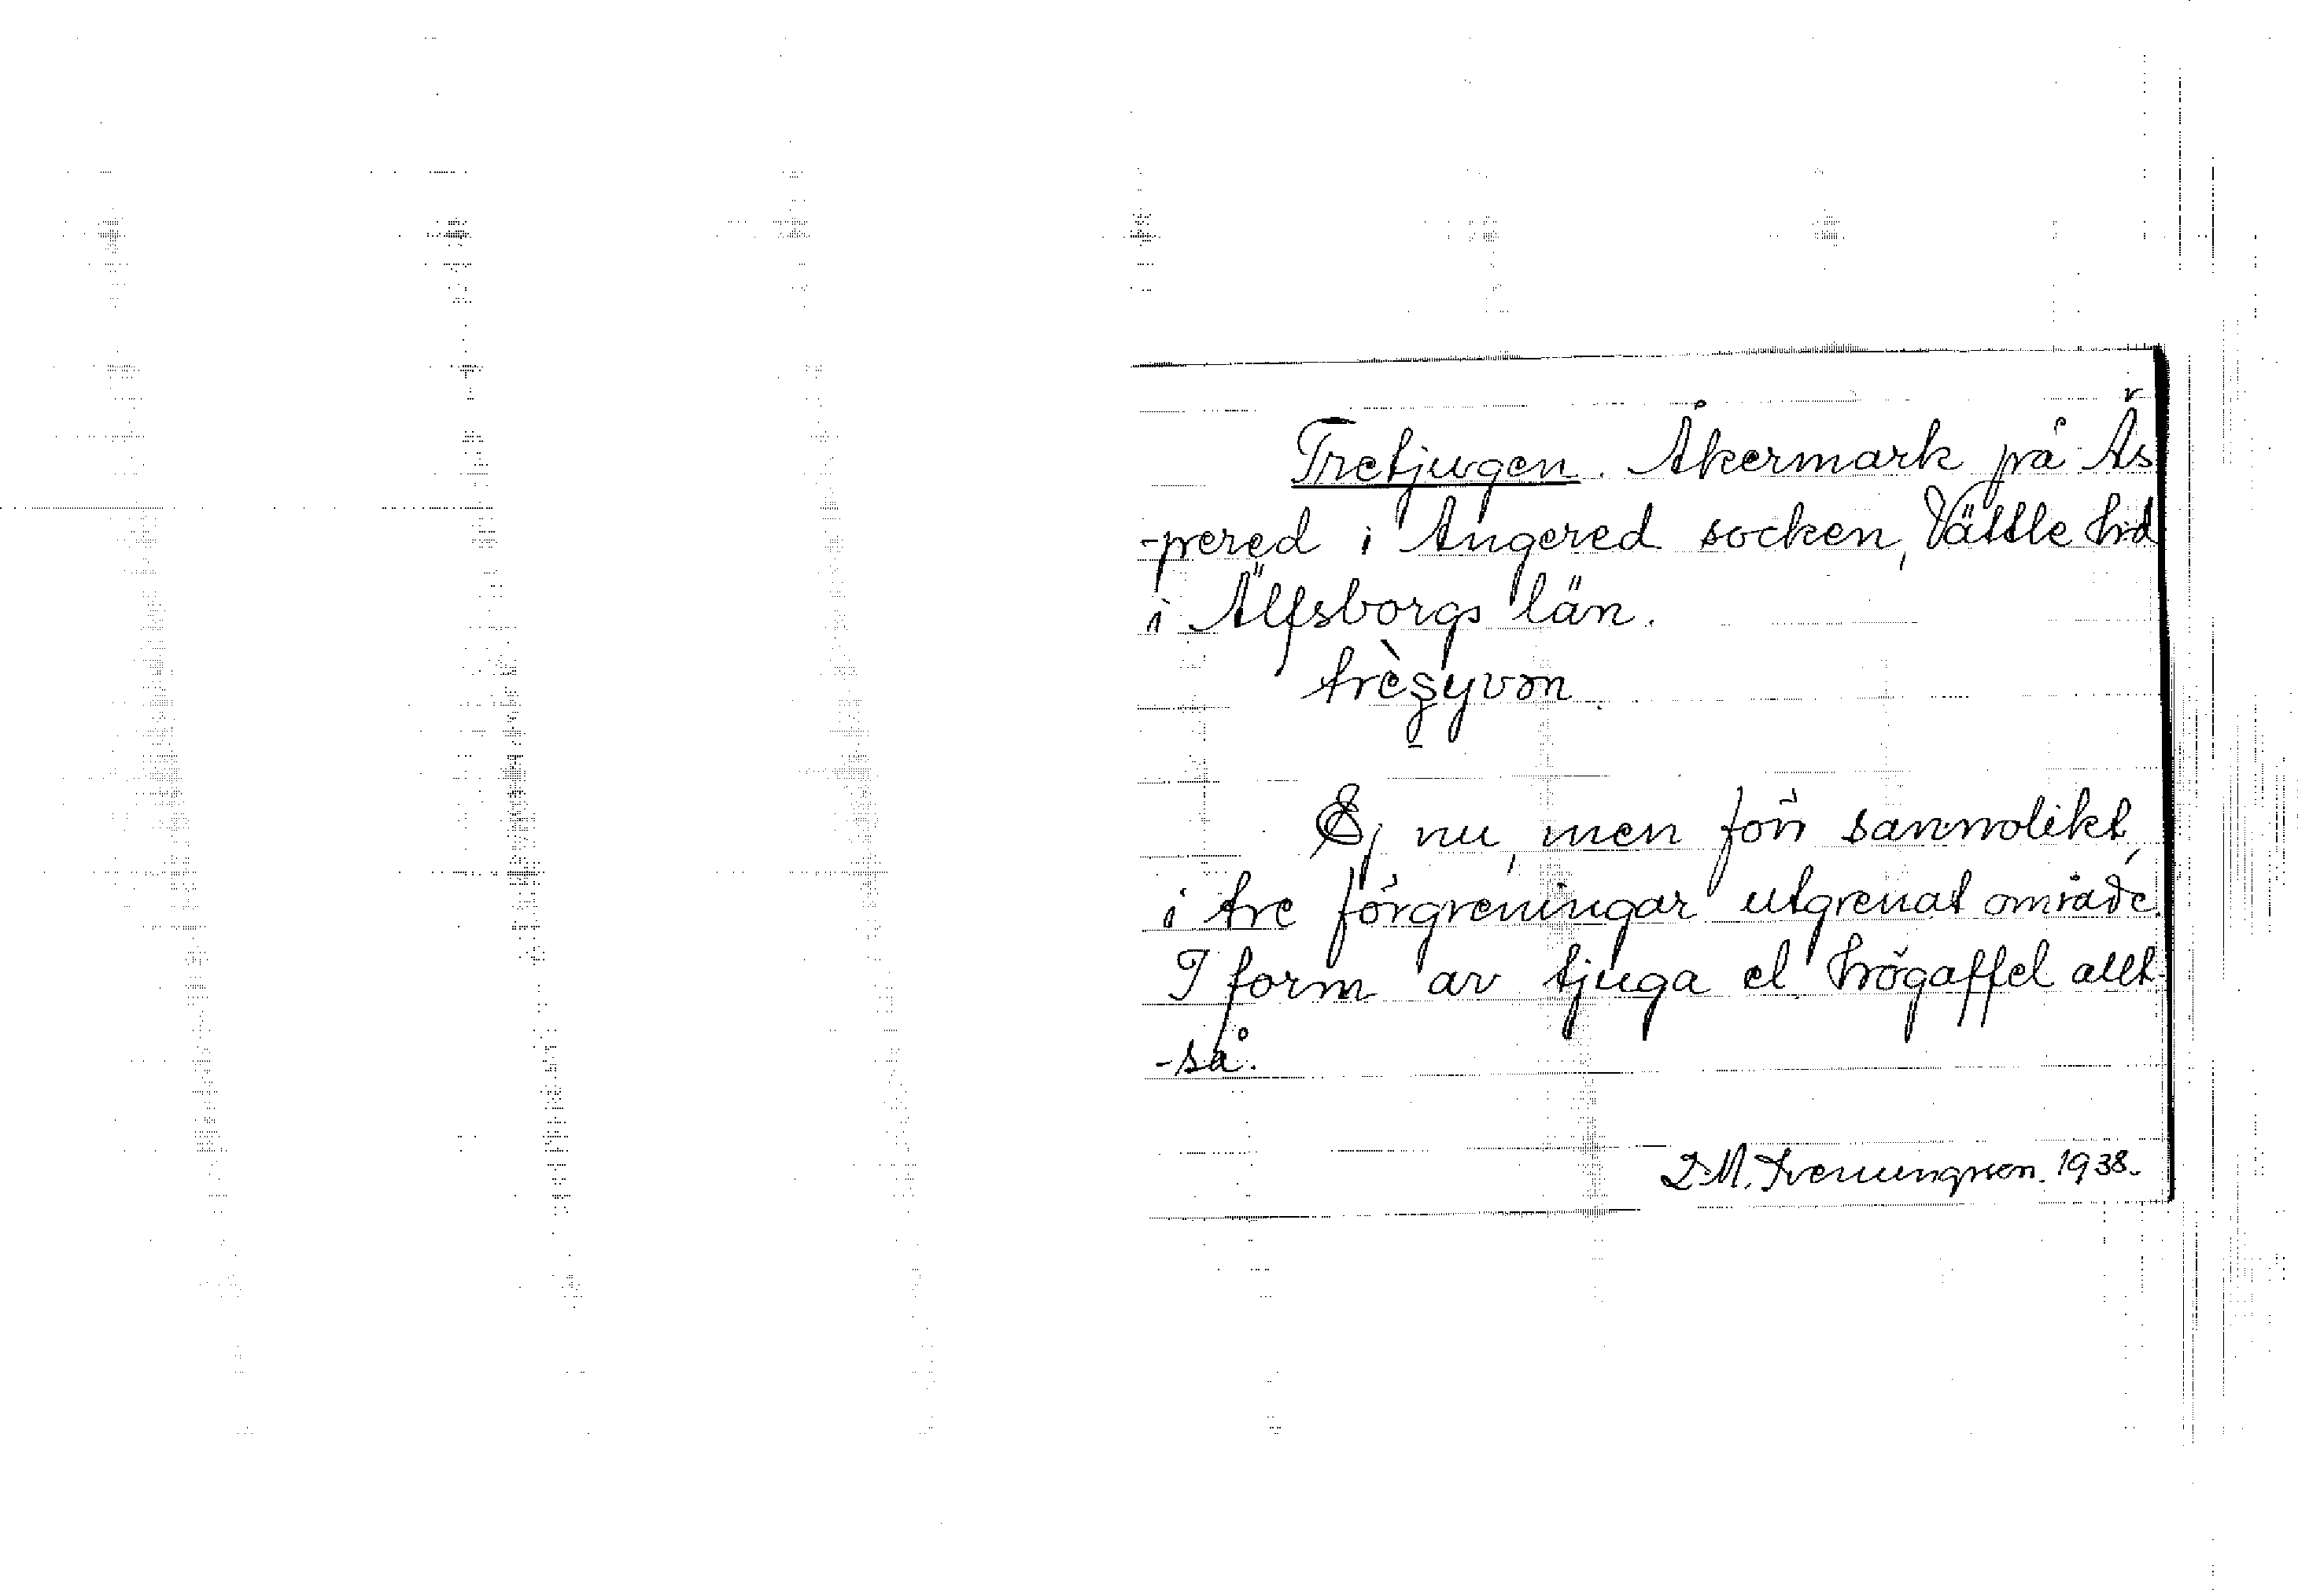 Tretjugen. Åkermark på Äs
-pered i Angered socken, Vättle hd
i Älfsborgs län.
Ej nu, men förr sannolikt,
i tre förgreningar utgrenat område.
I form av tjuga el. högaffel allt-
-så.
1938.